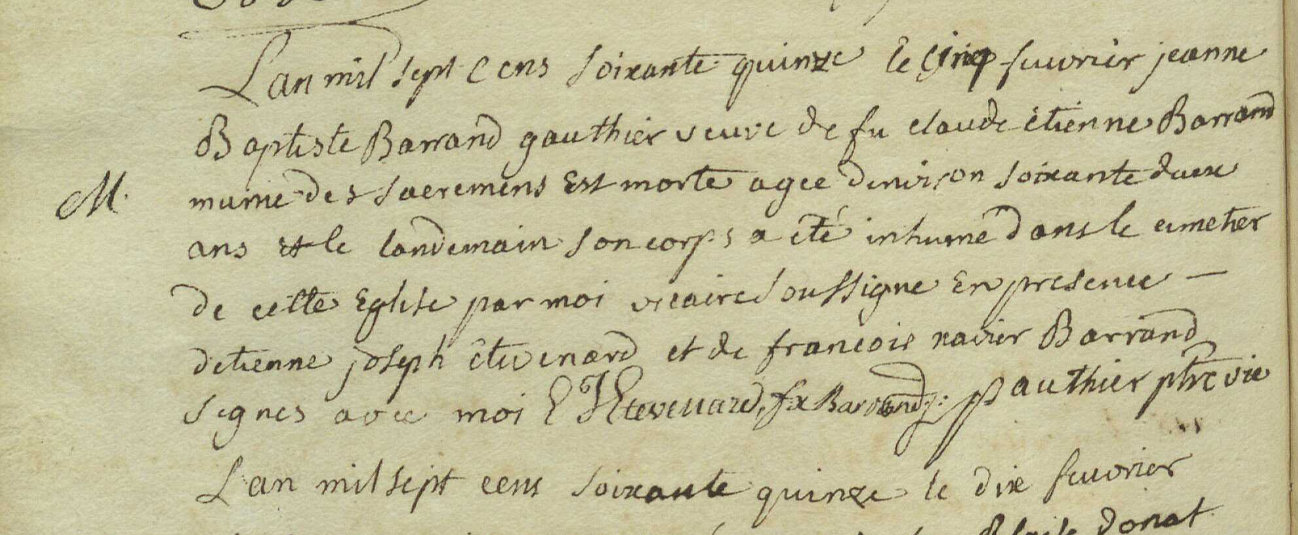 Lan mil sept Cens soixante quinze le cinq fevvrier jeanne
Baptiste Barrand gauthier veuve de fu claude étienne Barrand
munie des sacremens Est morte agee denviron soixante deux
M. ans et le landemain son corps a été inhumé dans le cimetier
de cette Eglise par moi vicaire soussigne En presence —
detienne joseph étevenard et de francois xavier Barrand
signes avec moi E J Etevenard, fx Barrand j: p gauthier ptre vic
Lan mil sept cens soixante quinze le dix fevvrier
donat